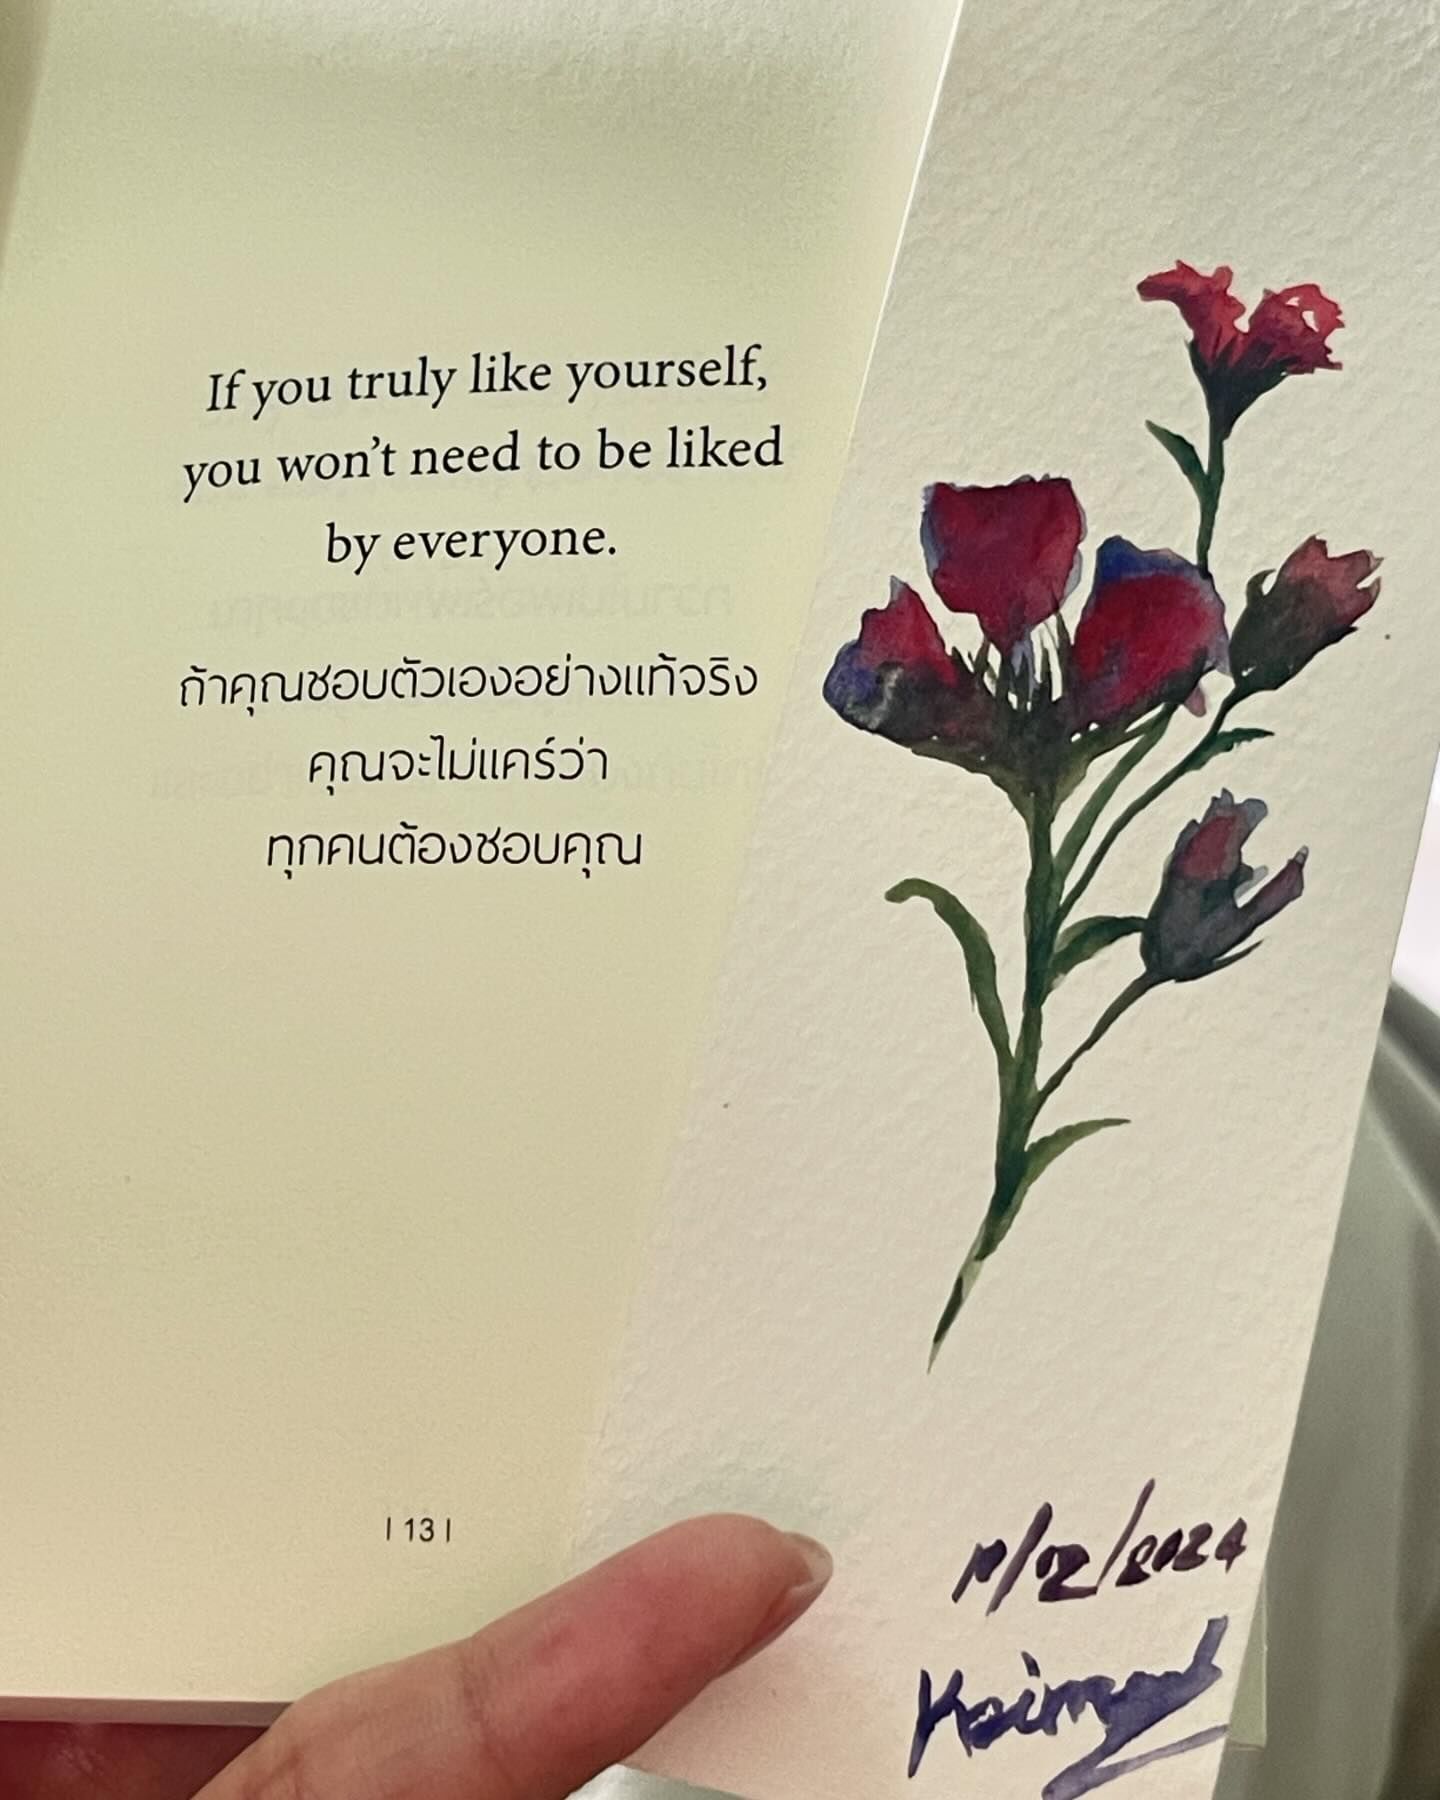 If you truly like yourself,
you won't need to be liked
by everyone.
ถ้าคุณชอบตัวเองอย่างแท้จริง
คุณจะไม่แคร์ว่า
ทุกคนต้องชอบคุณ
| 13 |